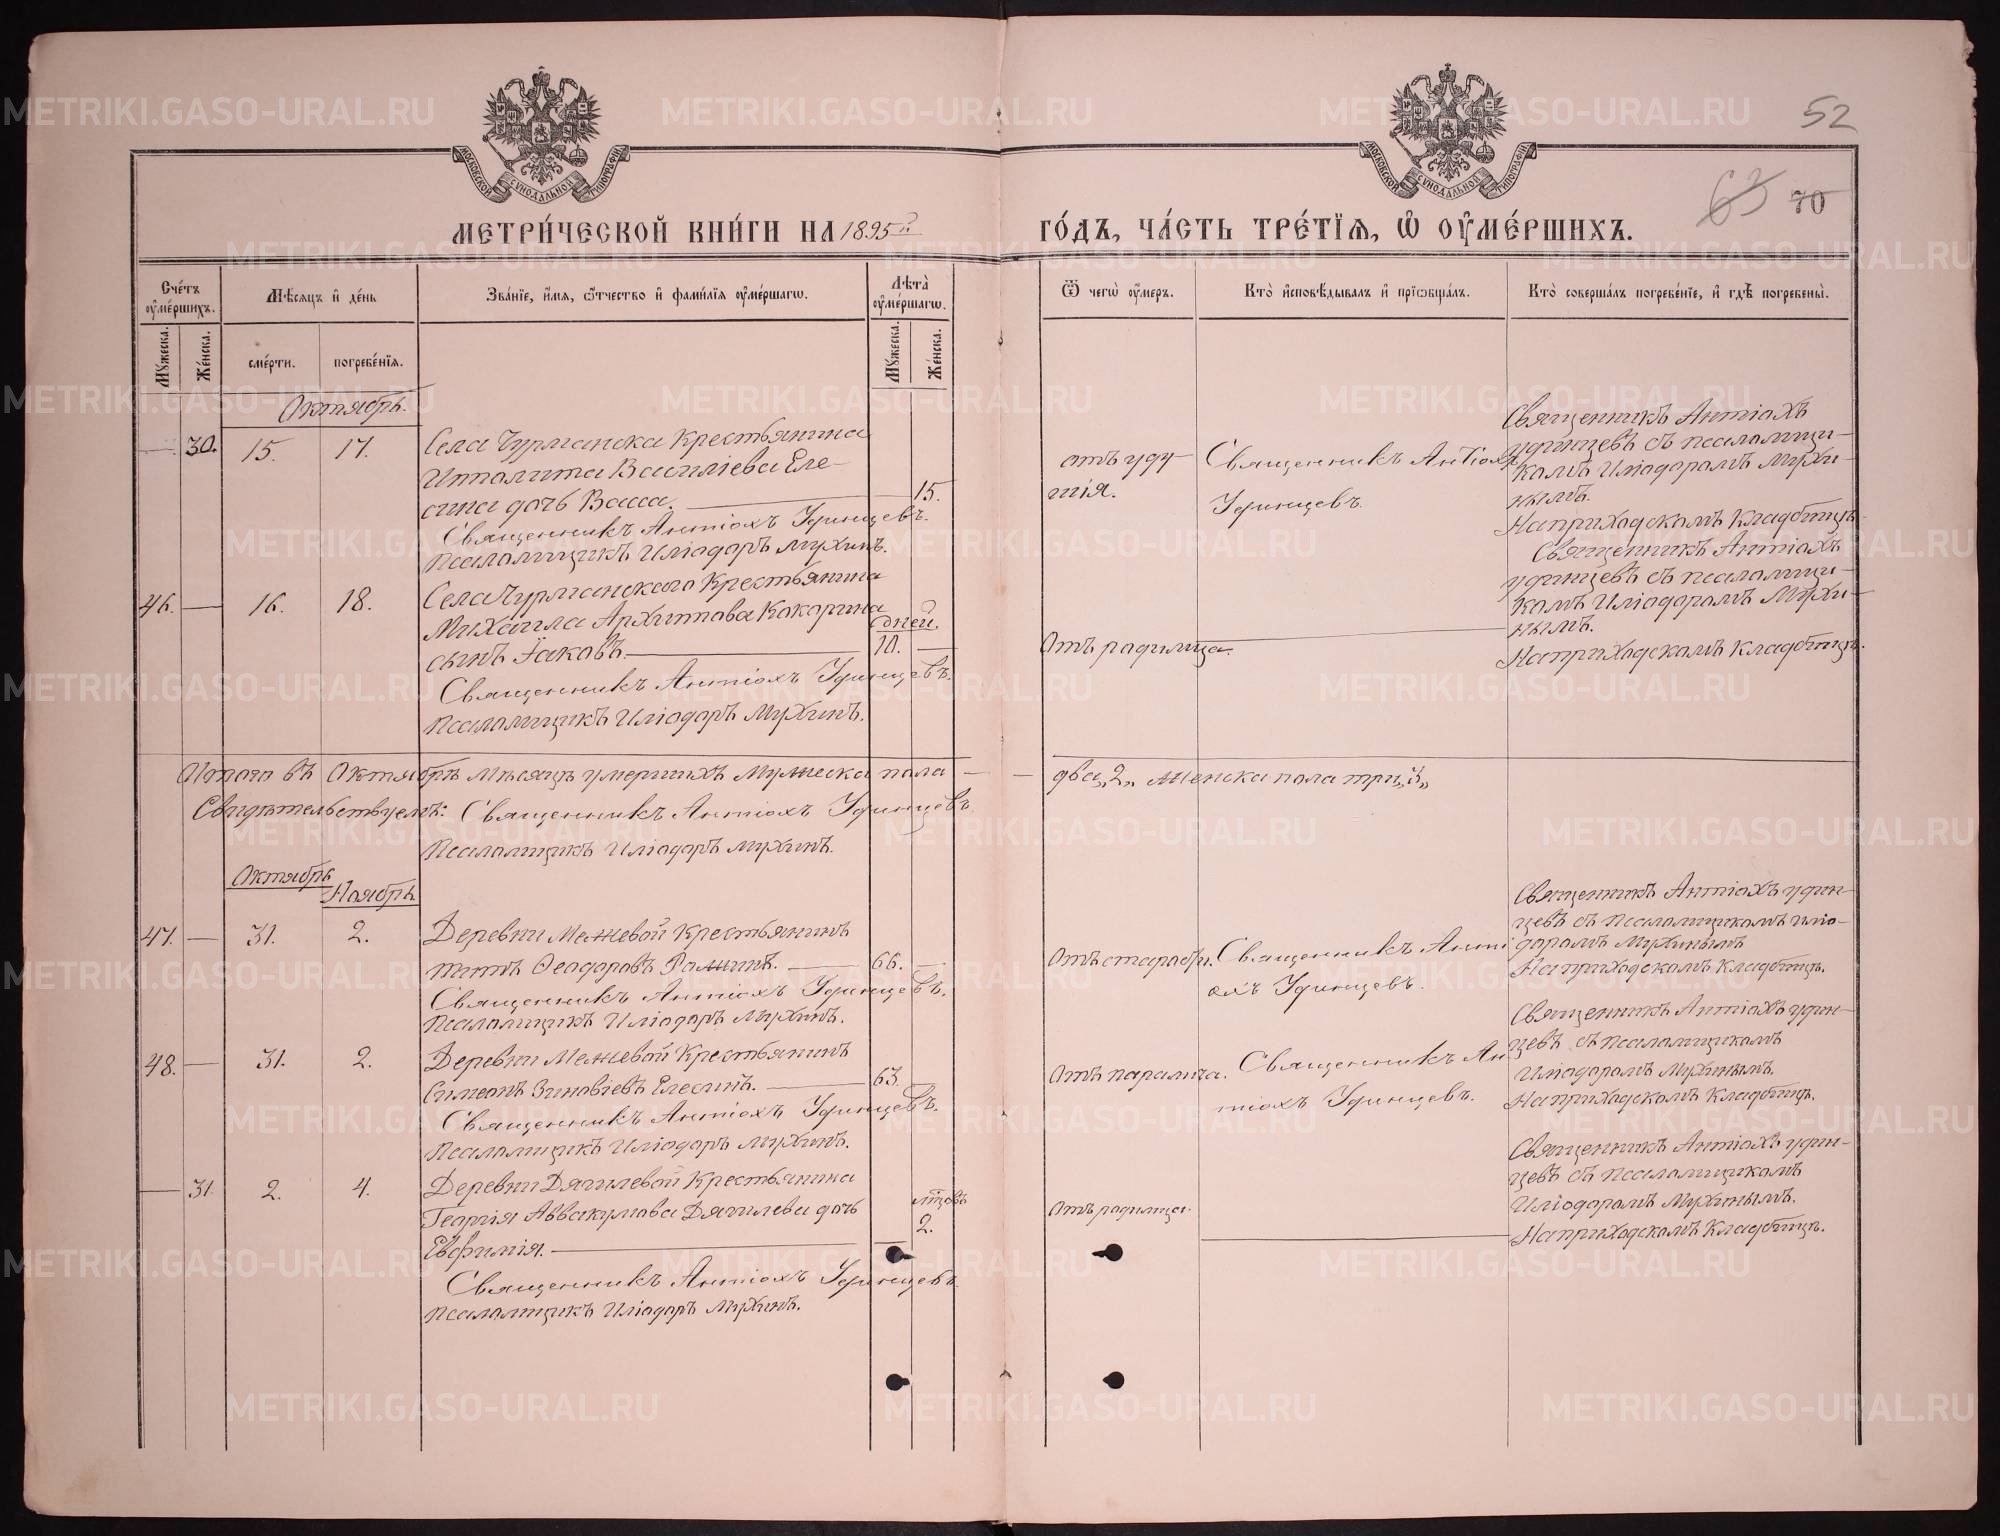 МОСКОВСКОЙ СѴНОДАЛЬНОЙ ТИПОГРАФІИ
МОСКОВСКОЙ СѴНОДАЛЬНОЙ ТИПОГРАФІИ
52
63 70
МЕТРИ́ЧЕСКОЙ КНИ́ГИ НА 1895й
ГО́ДЪ, ЧА́СТЬ ТРЕ́ТІѦ, Ѡ҆ ОУ҆МЕ́РШИХЪ.
Сче́тъ оу҆ме́ршихъ.
Мѣсѧцъ и҆ де́нь
Зва́нїе, и҆́мѧ, ѻ҆́тчество и҆ фами́лїѧ оу҆ме́ршагѡ.
Лѣта̀ оу҆ме́ршагѡ.
Ѿ чегѡ̀ оу҆́меръ.
Кто̀ и҆сповѣ́дывалъ и҆ прїѡбща́лъ.
Кто̀ соверша́лъ погребе́нїе, и҆ гдѣ̀ погребены̀.
Мꙋ́жеска.
Же́нска.
сме́рти.
погребе́нїѧ.
Мꙋ́жеска.
Же́нска.
Октябрь.
— 30. 15. 17.
Села Чурманска Крестьянина
Ипполита Василіева Еле-
сина дочь Васса. — 15.
Священникъ Антіохъ Удинцевъ.
Псаломщикъ Иліодоръ Мухинъ.
отъ уду-
шія.
Священникъ Антіохъ
Удинцевъ.
Священникъ Антіохъ
Удинцевъ съ псаломщи-
комъ Иліодоромъ Мухи-
нымъ.
На приходскомъ кладбищѣ.
46. — 16. 18.
Села Чурманскаго Крестьянина
Михаила Архипова Кокорина
сынъ Іаковъ. дней. 10. —
Священникъ Антіохъ Удинцевъ.
Псаломщикъ Иліодоръ Мухинъ.
Отъ родимца.
Священникъ Антіохъ
Удинцевъ съ псаломщи-
комъ Иліодоромъ Мухи-
нымъ.
На приходскомъ кладбищѣ.
Итого въ Октябрѣ мѣсяцѣ умершихъ мужеска пола — — два „2„ женска пола три „3„
Свидѣтельствуемъ: Священникъ Антіохъ Удинцевъ.
Псаломщикъ Иліодоръ Мухинъ.
Октябрь
Ноябрь
47. — 31. 2.
Деревни Межевой Крестьянинъ
Титъ Ѳеодоровъ 66. —
Священникъ Антіохъ Удинцевъ.
Псаломщикъ Иліодоръ Мухинъ.
Отъ старости.
Священникъ Анті-
охъ Удинцевъ.
Священникъ Антіохъ Удин-
цевъ съ псаломщикомъ Иліо-
доромъ Мухинымъ
На приходскомъ кладбищѣ.
48. — 31. 2.
Деревни Межевой Крестьянинъ
Симеонъ Зиновіевъ Елесинъ. 63.
Священникъ Антіохъ Удинцевъ.
Псаломщикъ Иліодоръ Мухинъ.
Отъ паралича.
Священникъ Ан-
тіохъ Удинцевъ.
Священникъ Антіохъ Удин-
цевъ съ псаломщикомъ
Иліодоромъ Мухинымъ.
На приходскомъ кладбищѣ.
— 31. 2. 4.
Деревни Дягилевой Крестьянина
Георгія Аввакумова Дягилева дочь
Евфимія. мѣсцовъ 2.
Священникъ Антіохъ Удинцевъ.
Псаломщикъ Иліодоръ Мухинъ.
Отъ родимца.
Священникъ Антіохъ Удин-
цевъ съ псаломщикомъ
Иліодоромъ Мухинымъ.
На приходскомъ кладбищѣ.
METRIKI.GASO-URAL.RU